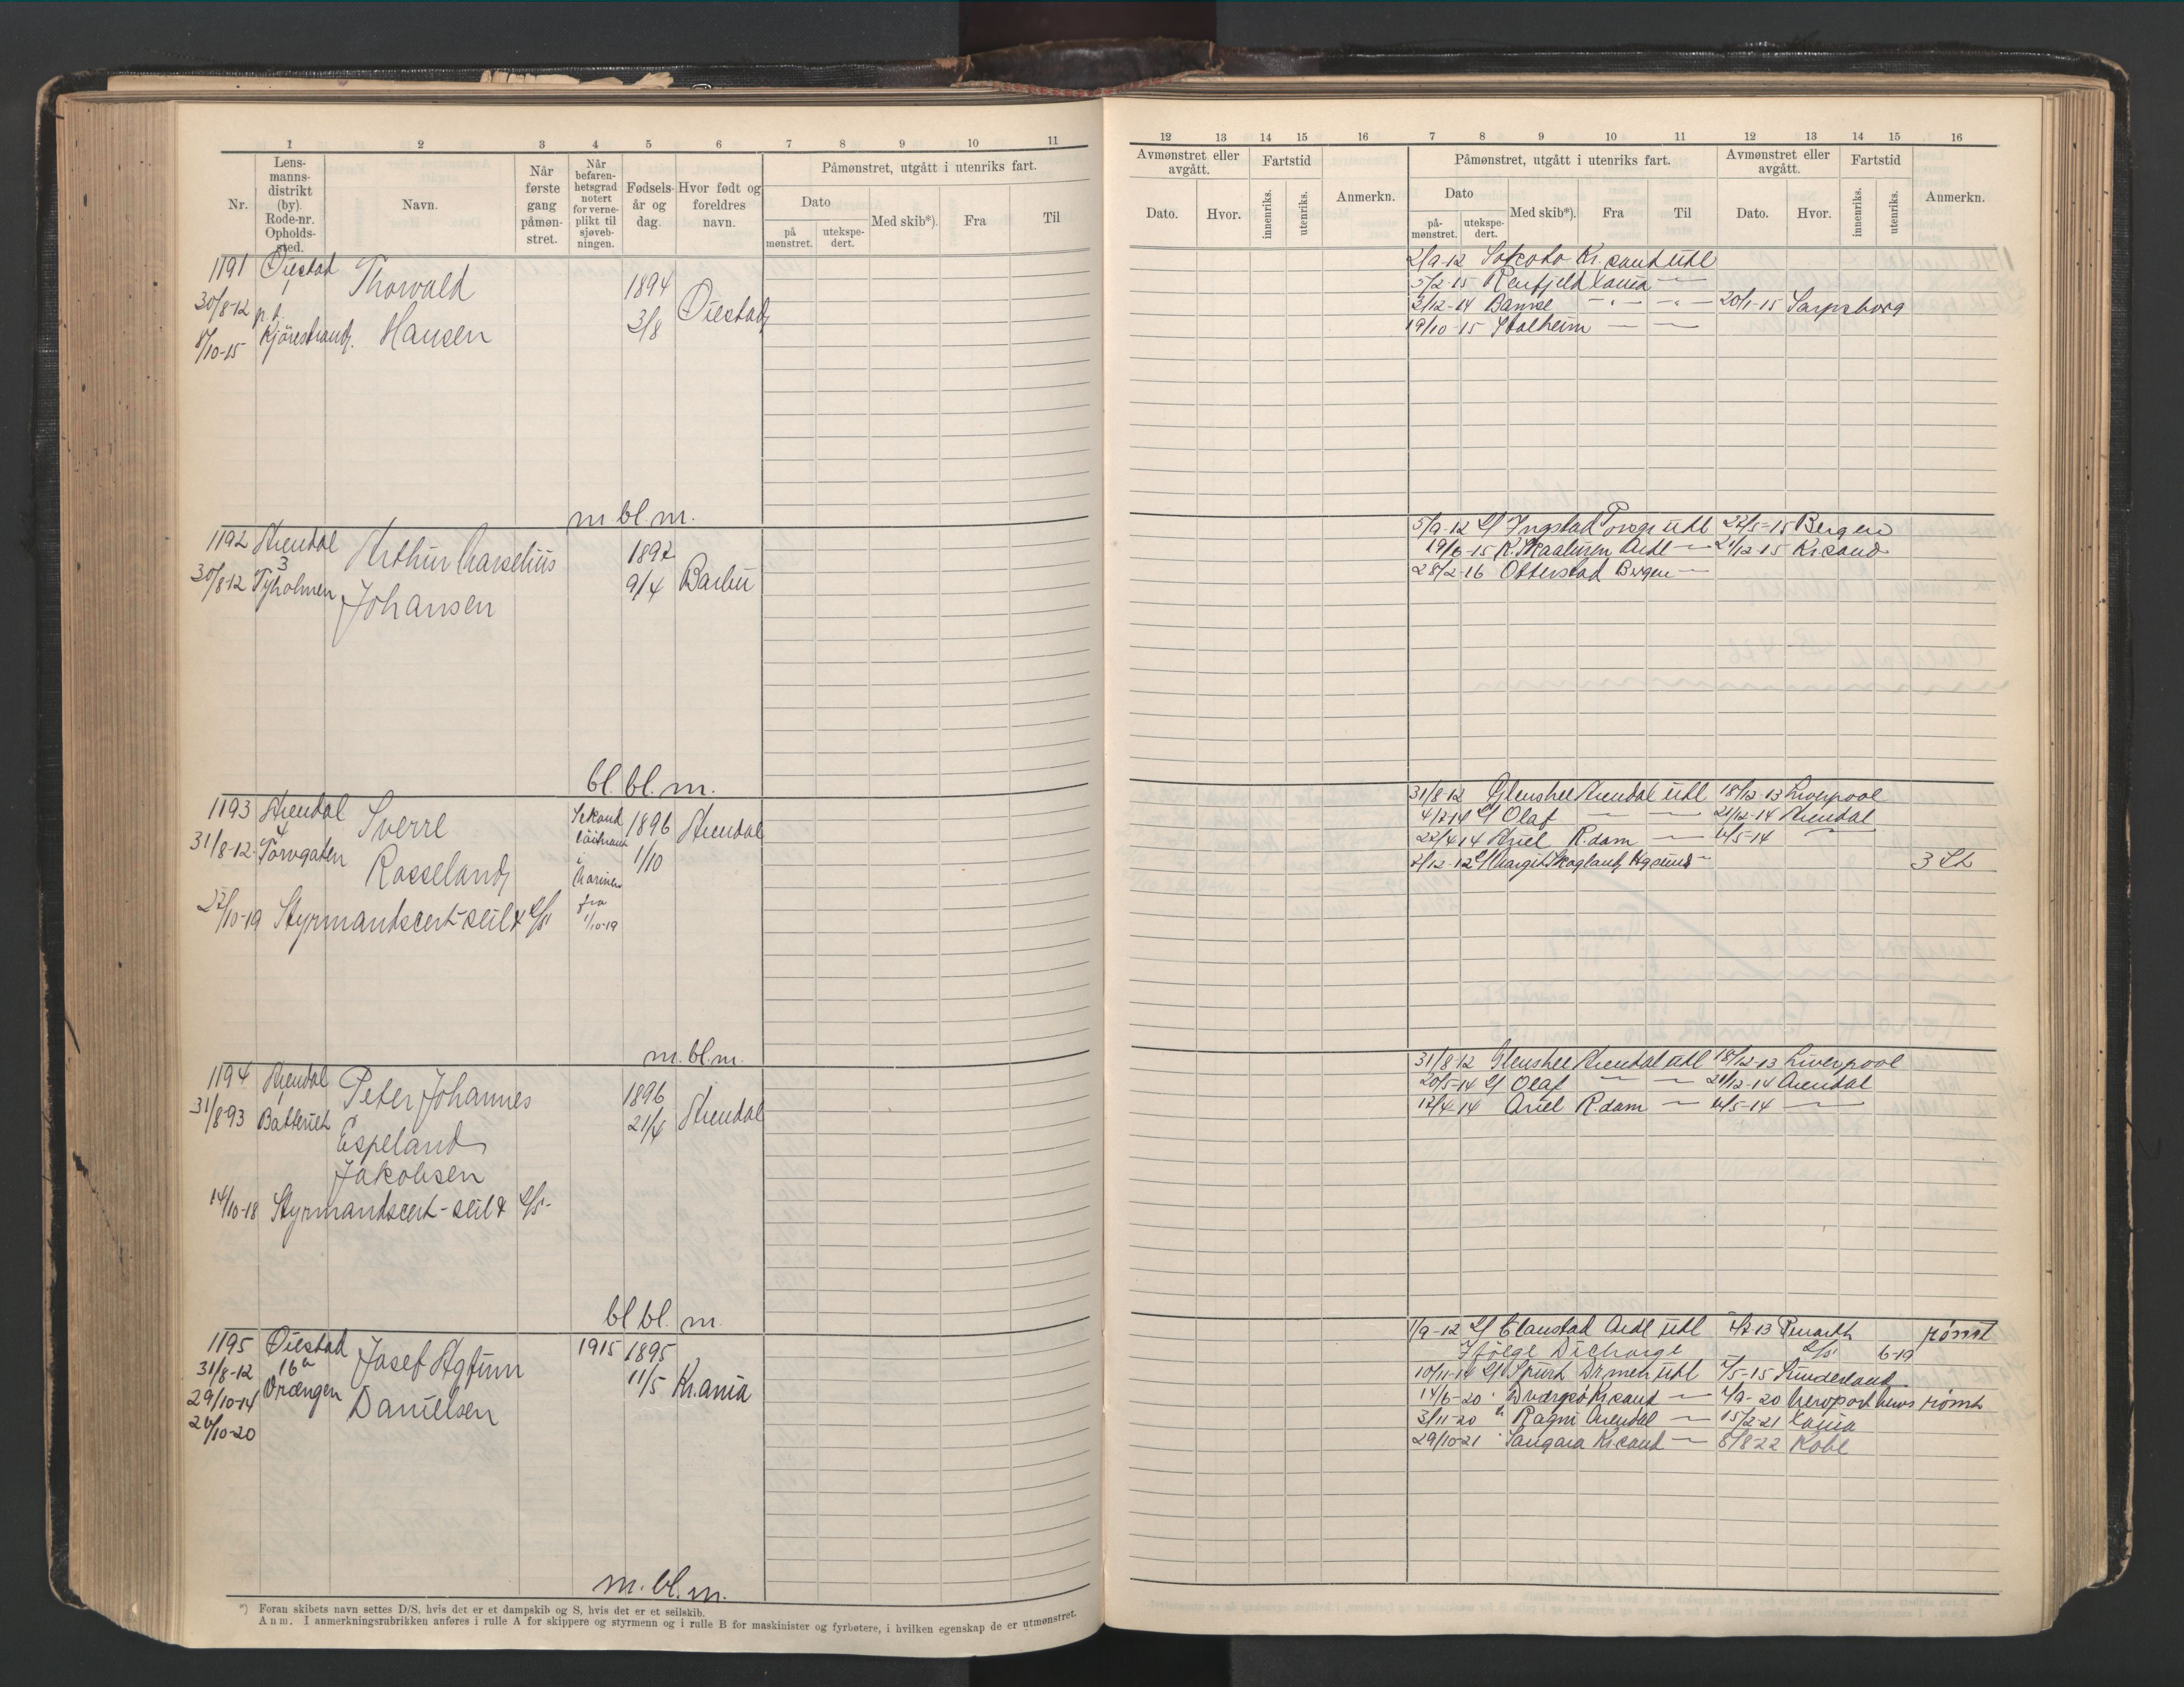 1 2 3 4 5 6 7 8 9 10 11
Nr.
Lens-
manns-
distrikt
(by).
Rode-nr.
Opholds-
sted.
Navn.
Når
første
gang
påmøn-
stret.
Når
befaren-
hetsgrad
notert
for verne-
plikt til
sjøveb-
ningen.
Fødsels-
år og
dag.
Hvor født og
foreldres
navn.
Påmønstret, utgått i utenriks fart.
Dato
på
mønstret.
utekspe-
dert.
Med skib*).
Fra
Til
1191 Øiestad
1
Thorvald
Hansen
30/8-12 p.t.
Kjørestrand.
8/10-15
1894
3/8
Øiestad
m. bl. m.
1192 Arendal
3
30/8-12 Tyholmen
Arthur Marselius
Johansen
1892
9/4
Barbu
bl. bl. m.
1193 Arendal
4
31/8-12. Torvgaten
Sverre
Rosseland
Sekond
løitnant
i
Marinen
fra
1/10-19
1896
1/10
Arendal
22/10-19 Styrmandscert-seil & D/S
m. bl. m.
1194 Arendal
1
31/8-93 Batteriet
Peter Johannes
Espeland
Jakobsen
1896
21/4
Arendal
14/10-18 Styrmandscert-seil & D/S-
bl bl. m.
1195 Øiestad
16a
31/8-12
Vrængen
29/10-14
26/10-20
Josef Agfinn
Danielsen
1915 1895
11/5
Kr.ania
m. bl. m.
*) Foran skibets navn settes D/S, hvis det er et dampskib og S, hvis det er et seilskib.
Anm. I anmerkningsrubrikken anføres i rulle A for skippere og styrmenn og i rulle B for maskinister og fyrbøtere, i hvilken egenskap de er utmønstret.
12 13 14 15 16 7 8 9 10 11 12 13 14 15 16
Avmønstret eller
avgått.
Dato.
Hvor.
Fartstid
innenriks.
utenriks.
Anmerkn.
Påmønstret, utgått i utenriks fart.
Dato
på-
mønstret.
utekspe-
dert.
Med skib*).
Fra
Til
Avmønstret eller
avgått.
Dato.
Hvor.
Fartstid
innenriks.
utenriks.
Anmerkn.
2/9-12 Sokoto Kr.sand utl
5/2-15 Renfjeld Xania —
3/12-14 Bamse —"— —"— 20/1-15 Sarpsborg
19/10-15 Stalheim — —
5/9-12 D/S Ingstad Porsgr utl 22/5-15 Bergen
19/6-15 K. Skaaluren Ardl — 21/12-15 Kr.sand
28/2-16 Otterstad Bergen —
31/8-12 Glenshee Arendal utl 18/12-13 Liverpool
D/S Olaf — — 21/12-14 Arendal
22/4-14 Ariel R.dam — 4/5-14 —
2/12-12 D/S Margit Skogland Hgsund —
31/8-12 Glenshee Arendal utl 18/12-13 Liverpool
20/5-14 D/S Olaf — — 21/12-14 Arendal
12/4-14 Ariel R.dam — 4/5-14 —
1/9-12 D/S Elaustad Ardl utl 4/7-13 Penarth rømt
Ifølge Discharge D/S 6-19
10/11-14 D/S Spurt Drmen utl 7/5-15 Sunderland
14/6-20 " Dværgsø Kr.sand — 4/9-20 Newport News rømt
3/11-20 " Ragni Arendal — 15/2-21 Xania
29/10-21 " Sangara Kr.sand — 8/8-22 Kobe